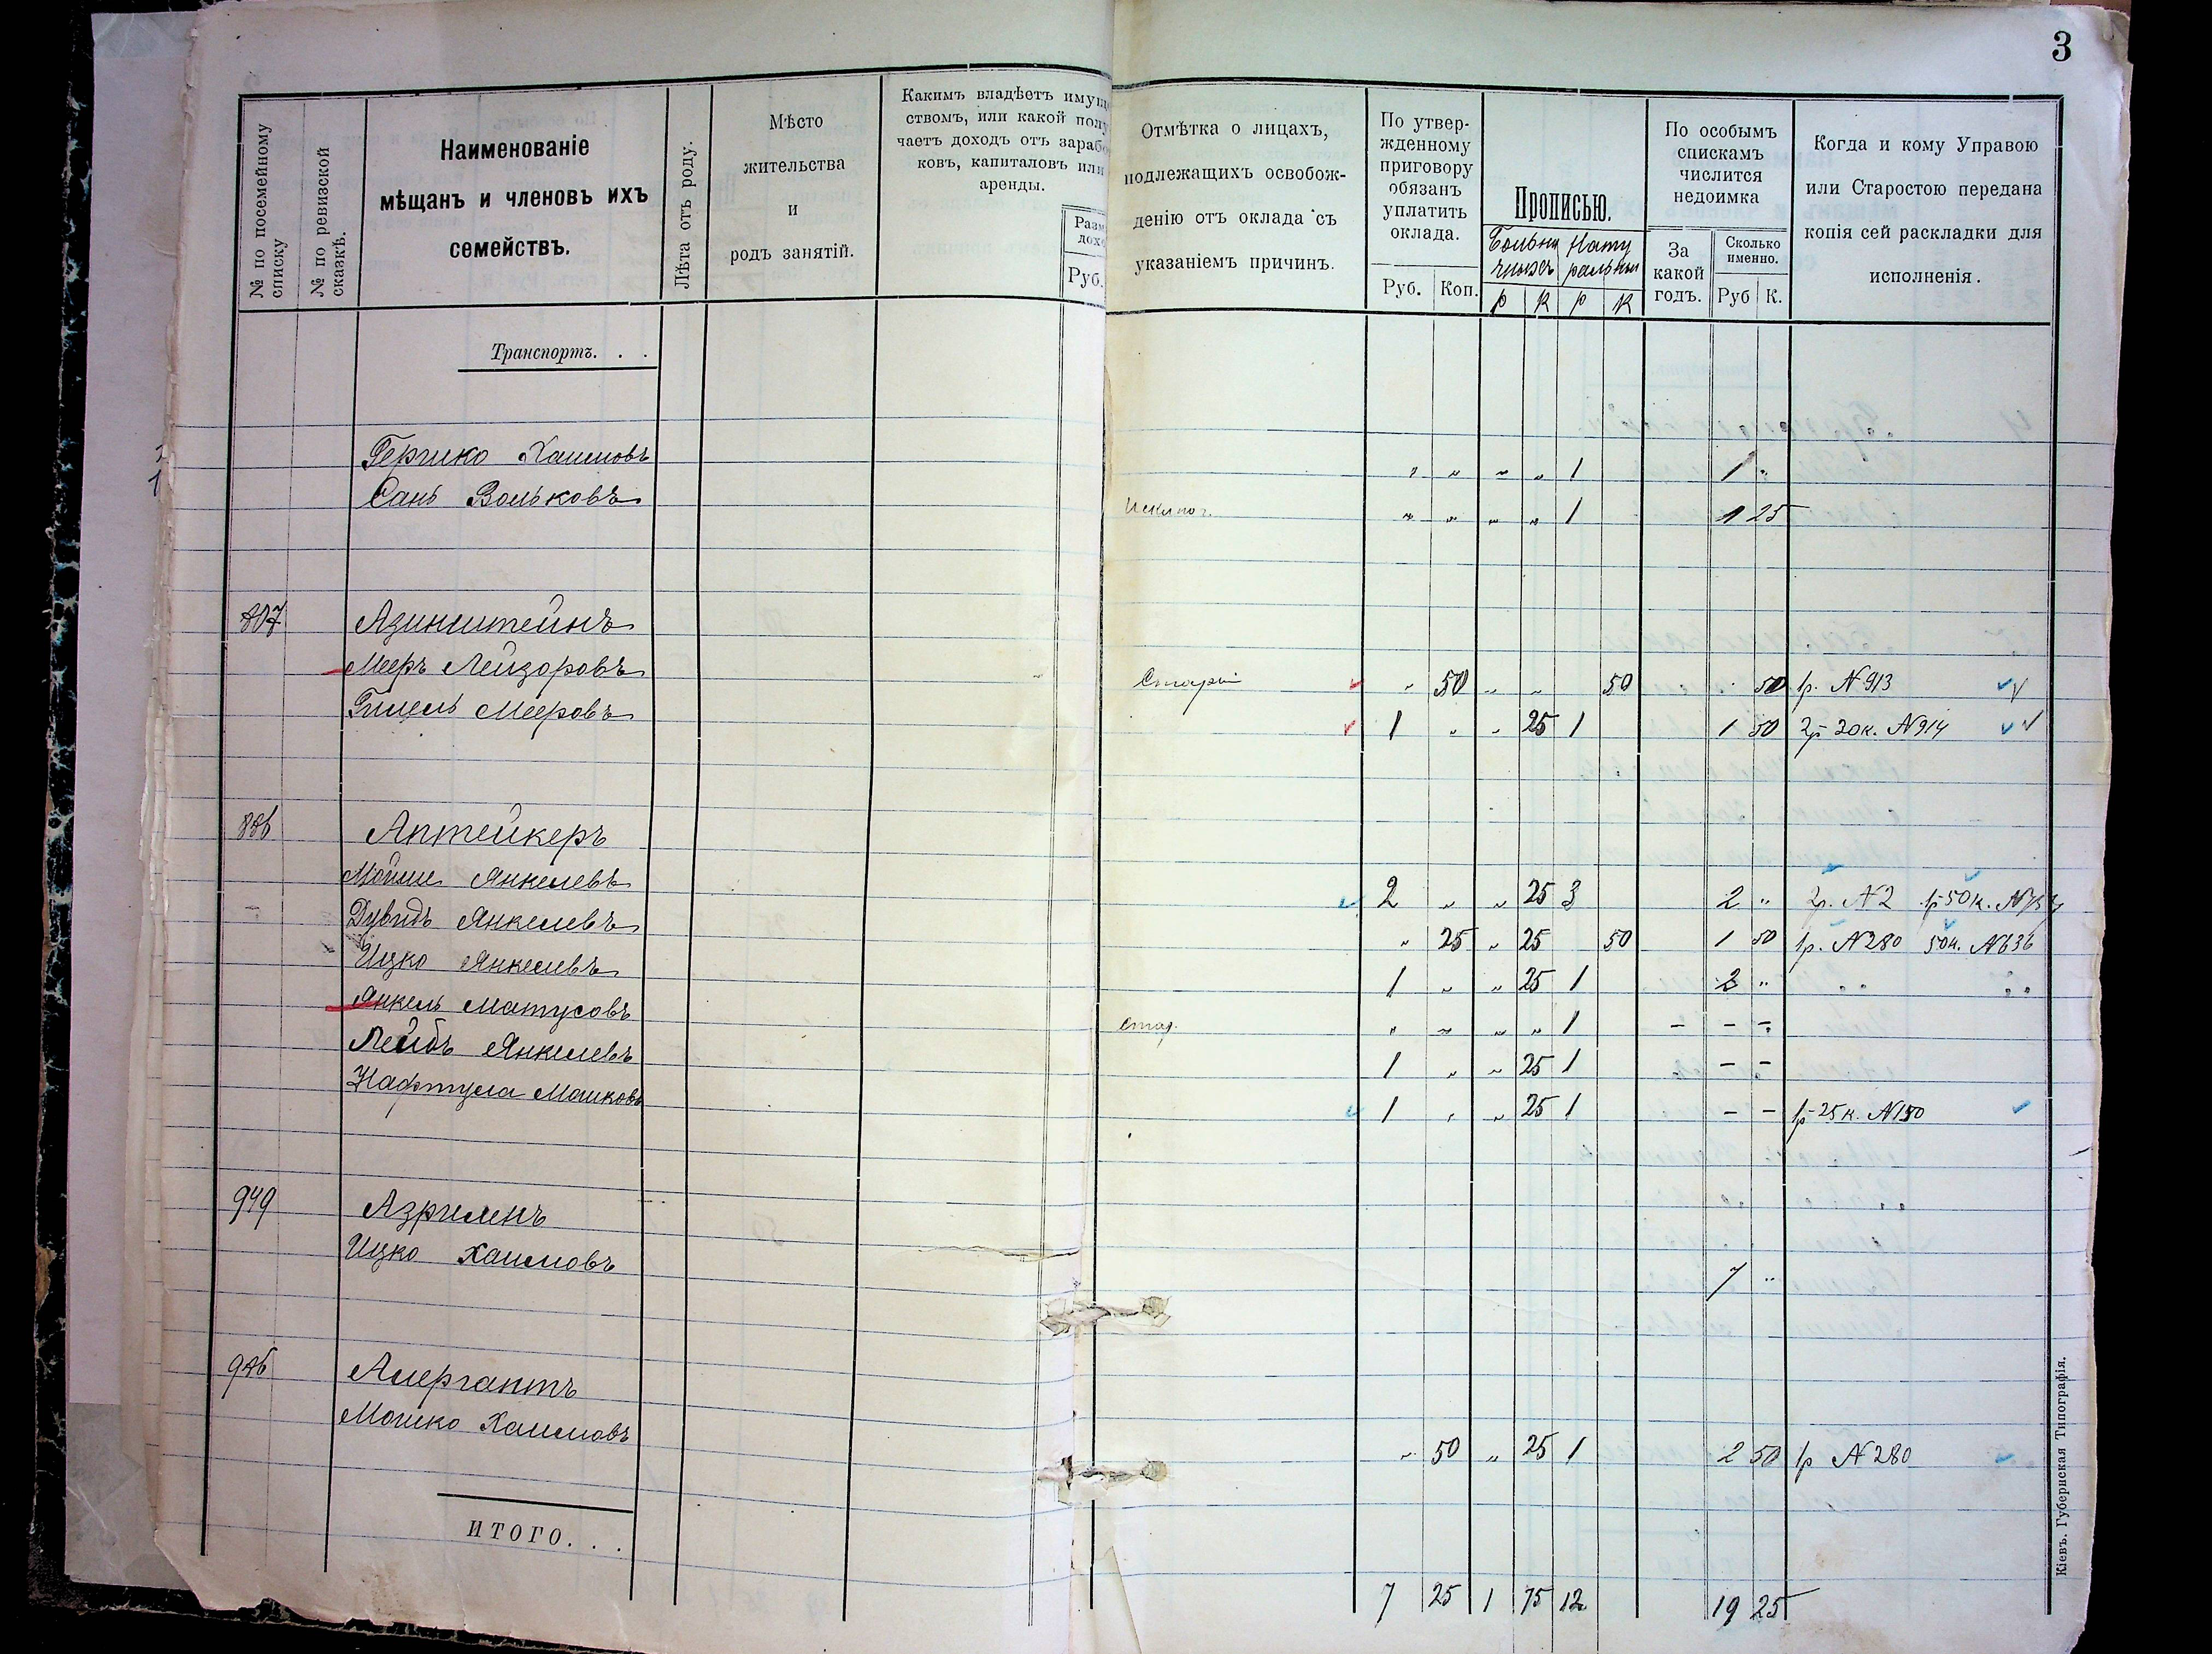 3
№ по посемейному списку
№ по ревизской сказкѣ.
Наименованіе
мѣщанъ и членовъ ихъ
семействъ.
Лѣта отъ роду.
Мѣсто
жительства
и
родъ занятій.
Какимъ владѣетъ имуще
ствомъ, или какой полу
чаетъ доходъ отъ зарабо
ковъ, капиталовъ или
аренды.
Разм
дохо
Руб.
Отмѣтка о лицахъ,
подлежащихъ освобож-
денію отъ оклада съ
указаніемъ причинъ.
По утвер-
жденному
приговору
обязанъ
уплатить
оклада.
Руб. Коп.
Прописью.
р к р к
По особымъ
спискамъ
числится
недоимка
За
какой
годъ.
Сколько
именно.
Руб К.
Когда и кому Управою
или Старостою передана
копія сей раскладки для
исполненія.
Транспортъ. . .
Гершко Хаимовъ " " " " 1 1 "
Сань Вольковъ Исключ. " " " " 1 1 25
807 Азинштейнъ
Мееръ Лейзоровъ Старый " 50 " " 50 50 1р. №913
Гилель Мееровъ 1 " " 25 1 1 50 2р 20к. №914
886 Аптейкеръ
Мойше Янкелевъ 2 " " 25 3 2 " 2р. №2 1р 50к.
Дувидъ Янкелевъ " 25 " 25 50 1 50 1р. №280 50к. №636
Ицко Янкелевъ 1 " " 25 1 2 "
Янкель Матусовъ Стар. " " " " 1 - - -
Лейбъ Янкелевъ 1 " " 25 1 - -
Нафтула Мошковъ 1 " " 25 1 - - 1р 25к. №150
949 Азриленъ
Ицко Хаимовъ 7 "
Алергантъ
Мошко Хаимовъ " 50 " 25 1 2 50 1р №280
ИТОГО. . .
7 25 1 75 12 19 25
Кіевъ. Губернская Типографія.